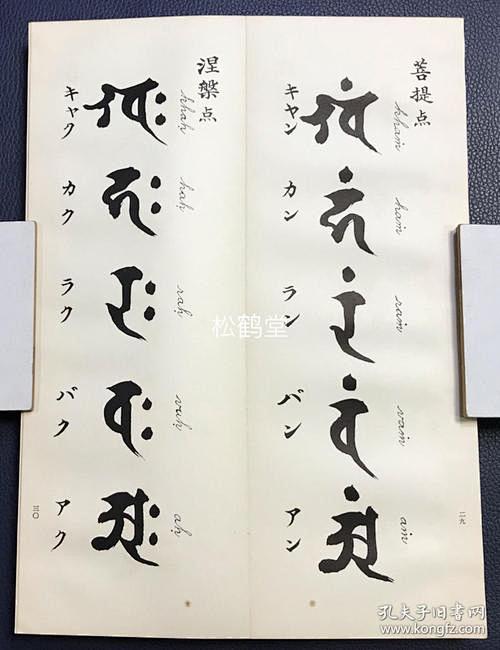 菩提点
キャン 𑖏𑖽 khaṁ
カン 𑖮𑖽 haṁ
ラン 𑖨𑖽 raṁ
バン 𑖪𑖽 vaṁ
アン 𑖀𑖽 aṁ
二九
涅槃点
キャク 𑖏𑖾 khaḥ
カク 𑖮𑖾 haḥ
ラク 𑖨𑖾 raḥ
バク 𑖪𑖾 vaḥ
アク 𑖀𑖾 aḥ
三〇
松鹤堂
孔夫子旧书网
www.kongfz.com